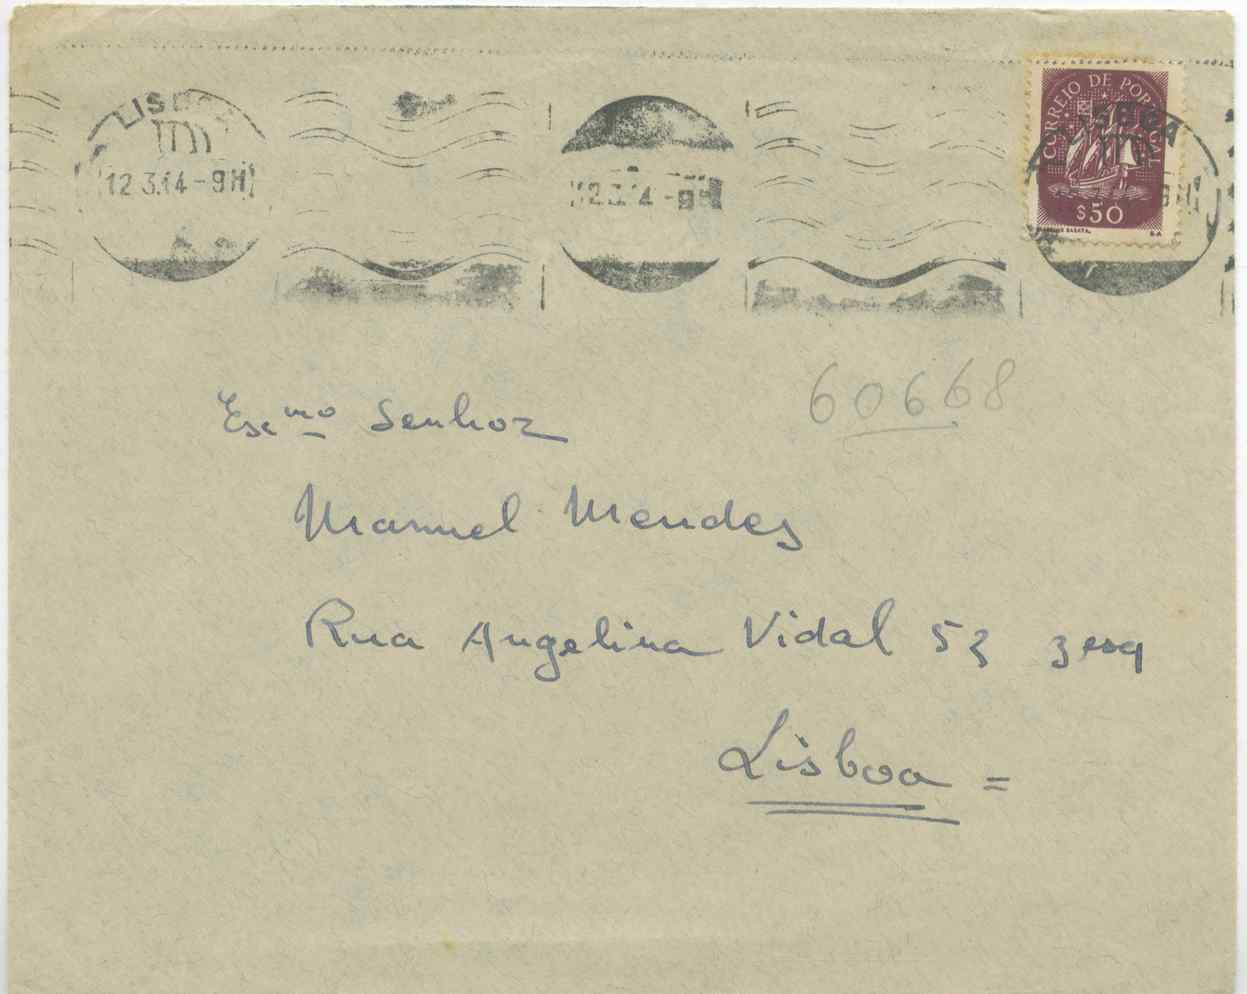 LISBOA
12.3.14-9H
CORREIO DE PORTUGAL
LISBOA
$50
60668
Ex mo Senhor
Manuel Mendes
Rua Angelina Vidal 53 3 esq
Lisboa =